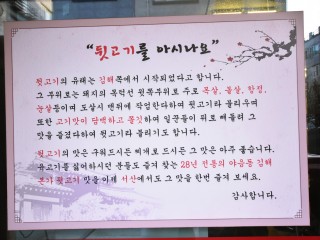 “뒷고기를 아시나요”
뒷고기의 유래는 김해쪽에서 시작되었다고 합니다.
그 부위로는 돼지의 목덕선 뒷쪽부위로 주로 목살, 볼살, 항정,
눈살등이며 도살시 맨뒤에 작업한다하여 뒷고기라 불리우며
또한 고기맛이 담백하고 쫄깃하여 일꾼들이 뒤로 빼돌려 그
맛을 즐겼다하여 뒷고기라 불리기도 합니다.
뒷고기의 맛은 구워드시든 찌개로 드시든 그 맛은 아주 좋습니다.
육고기를 싫어하시던 분들도 즐겨 찾는 28년 전통의 야음동 김해
본가 뒷고기 맛을 이제 서산에서도 그 맛을 한번 즐겨 보세요.
감사합니다.